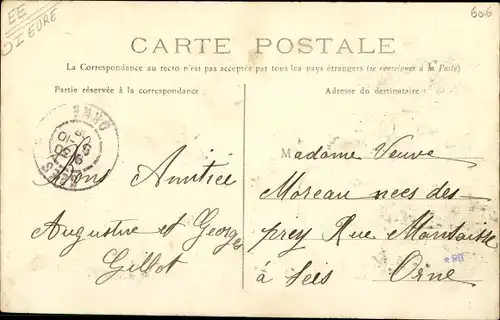 EE
EURE
606
CARTE POSTALE
La Correspondance au recto n'est pas acceptée par tous les pays étrangers (se renseigner à la Poste)
Partie réservée à la correspondance.
Adresse du destinataire.
ORNE
Amitiée
Augustine et Georges
Gillot
Madame Veuve
Moreau nees des
prey Rue
à Sées Orne
*RB